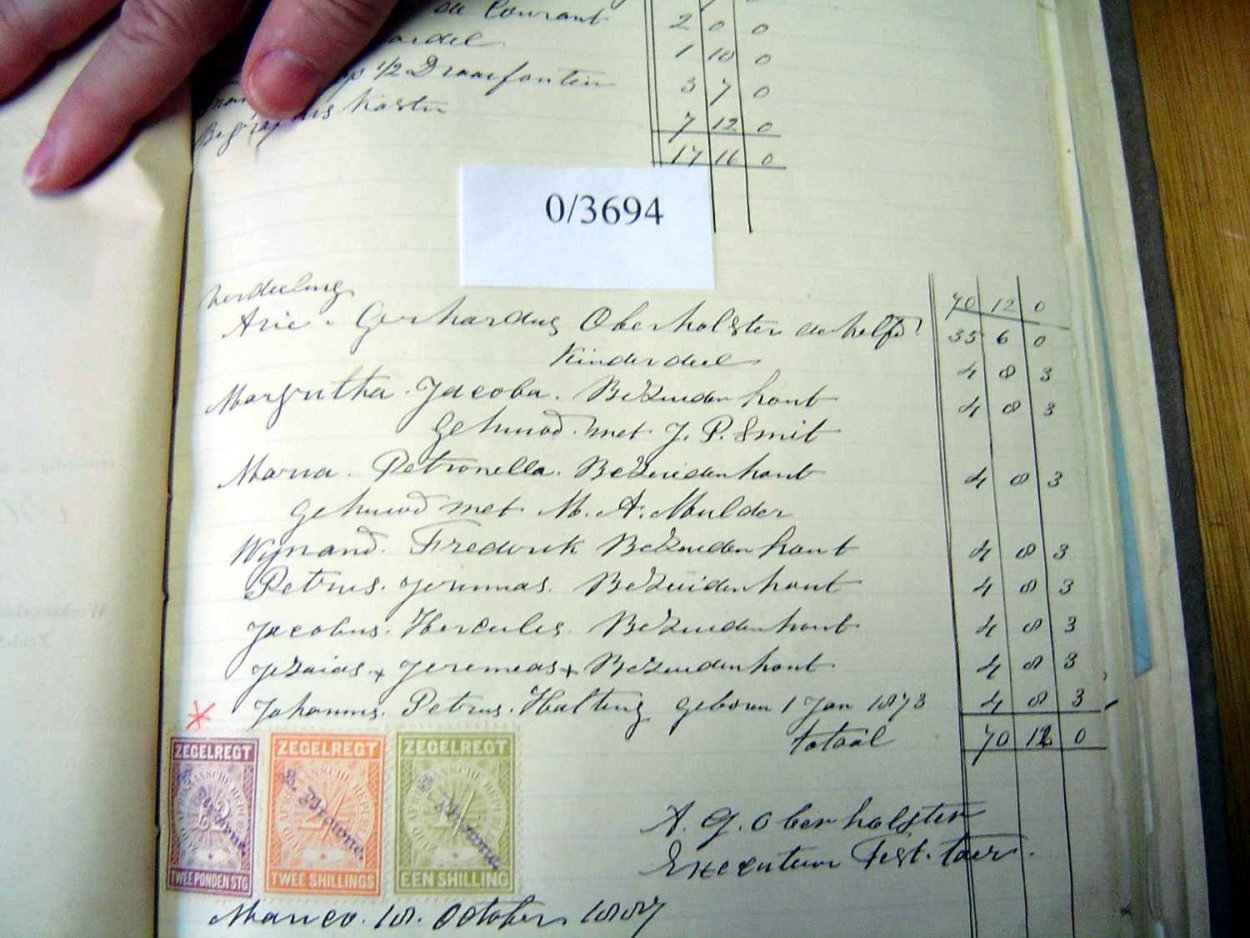 de Courant 2 0 0
1 10 0
op 1/2 Draaifontein 3 7 0
Begrafenis Kosten 7 12 0
17 16 0
0/3694
Verdeeling 70 12 0
Arie Gerhardus Oberholster de helft 35 6 0
Kinderdeel 4 8 3
Margritha Jacoba Bezuidenhout 4 8 3
gehuwd met J. P. Smit
Maria Petronella Bezuidenhout 4 8 3
gehuwd met M. A. Mulder
Wijnand Frederik Bezuidenhout 4 8 3
Petrus Jeremias Bezuidenhout 4 8 3
Jacobus Hercules Bezuidenhout 4 8 3
Jezaias x Jeremeas x Bezuidenhout 4 8 3
Johannis Petrus Halting geboren 1 Jan 1873 4 8 3
totaal 70 12 0
ZEGELREGT ZEGELREGT ZEGELREGT
TWEE PONDEN STG TWEE SHILLINGS EEN SHILLING
A. G. Oberholster
Executeur Test. taer.
18 October 1887